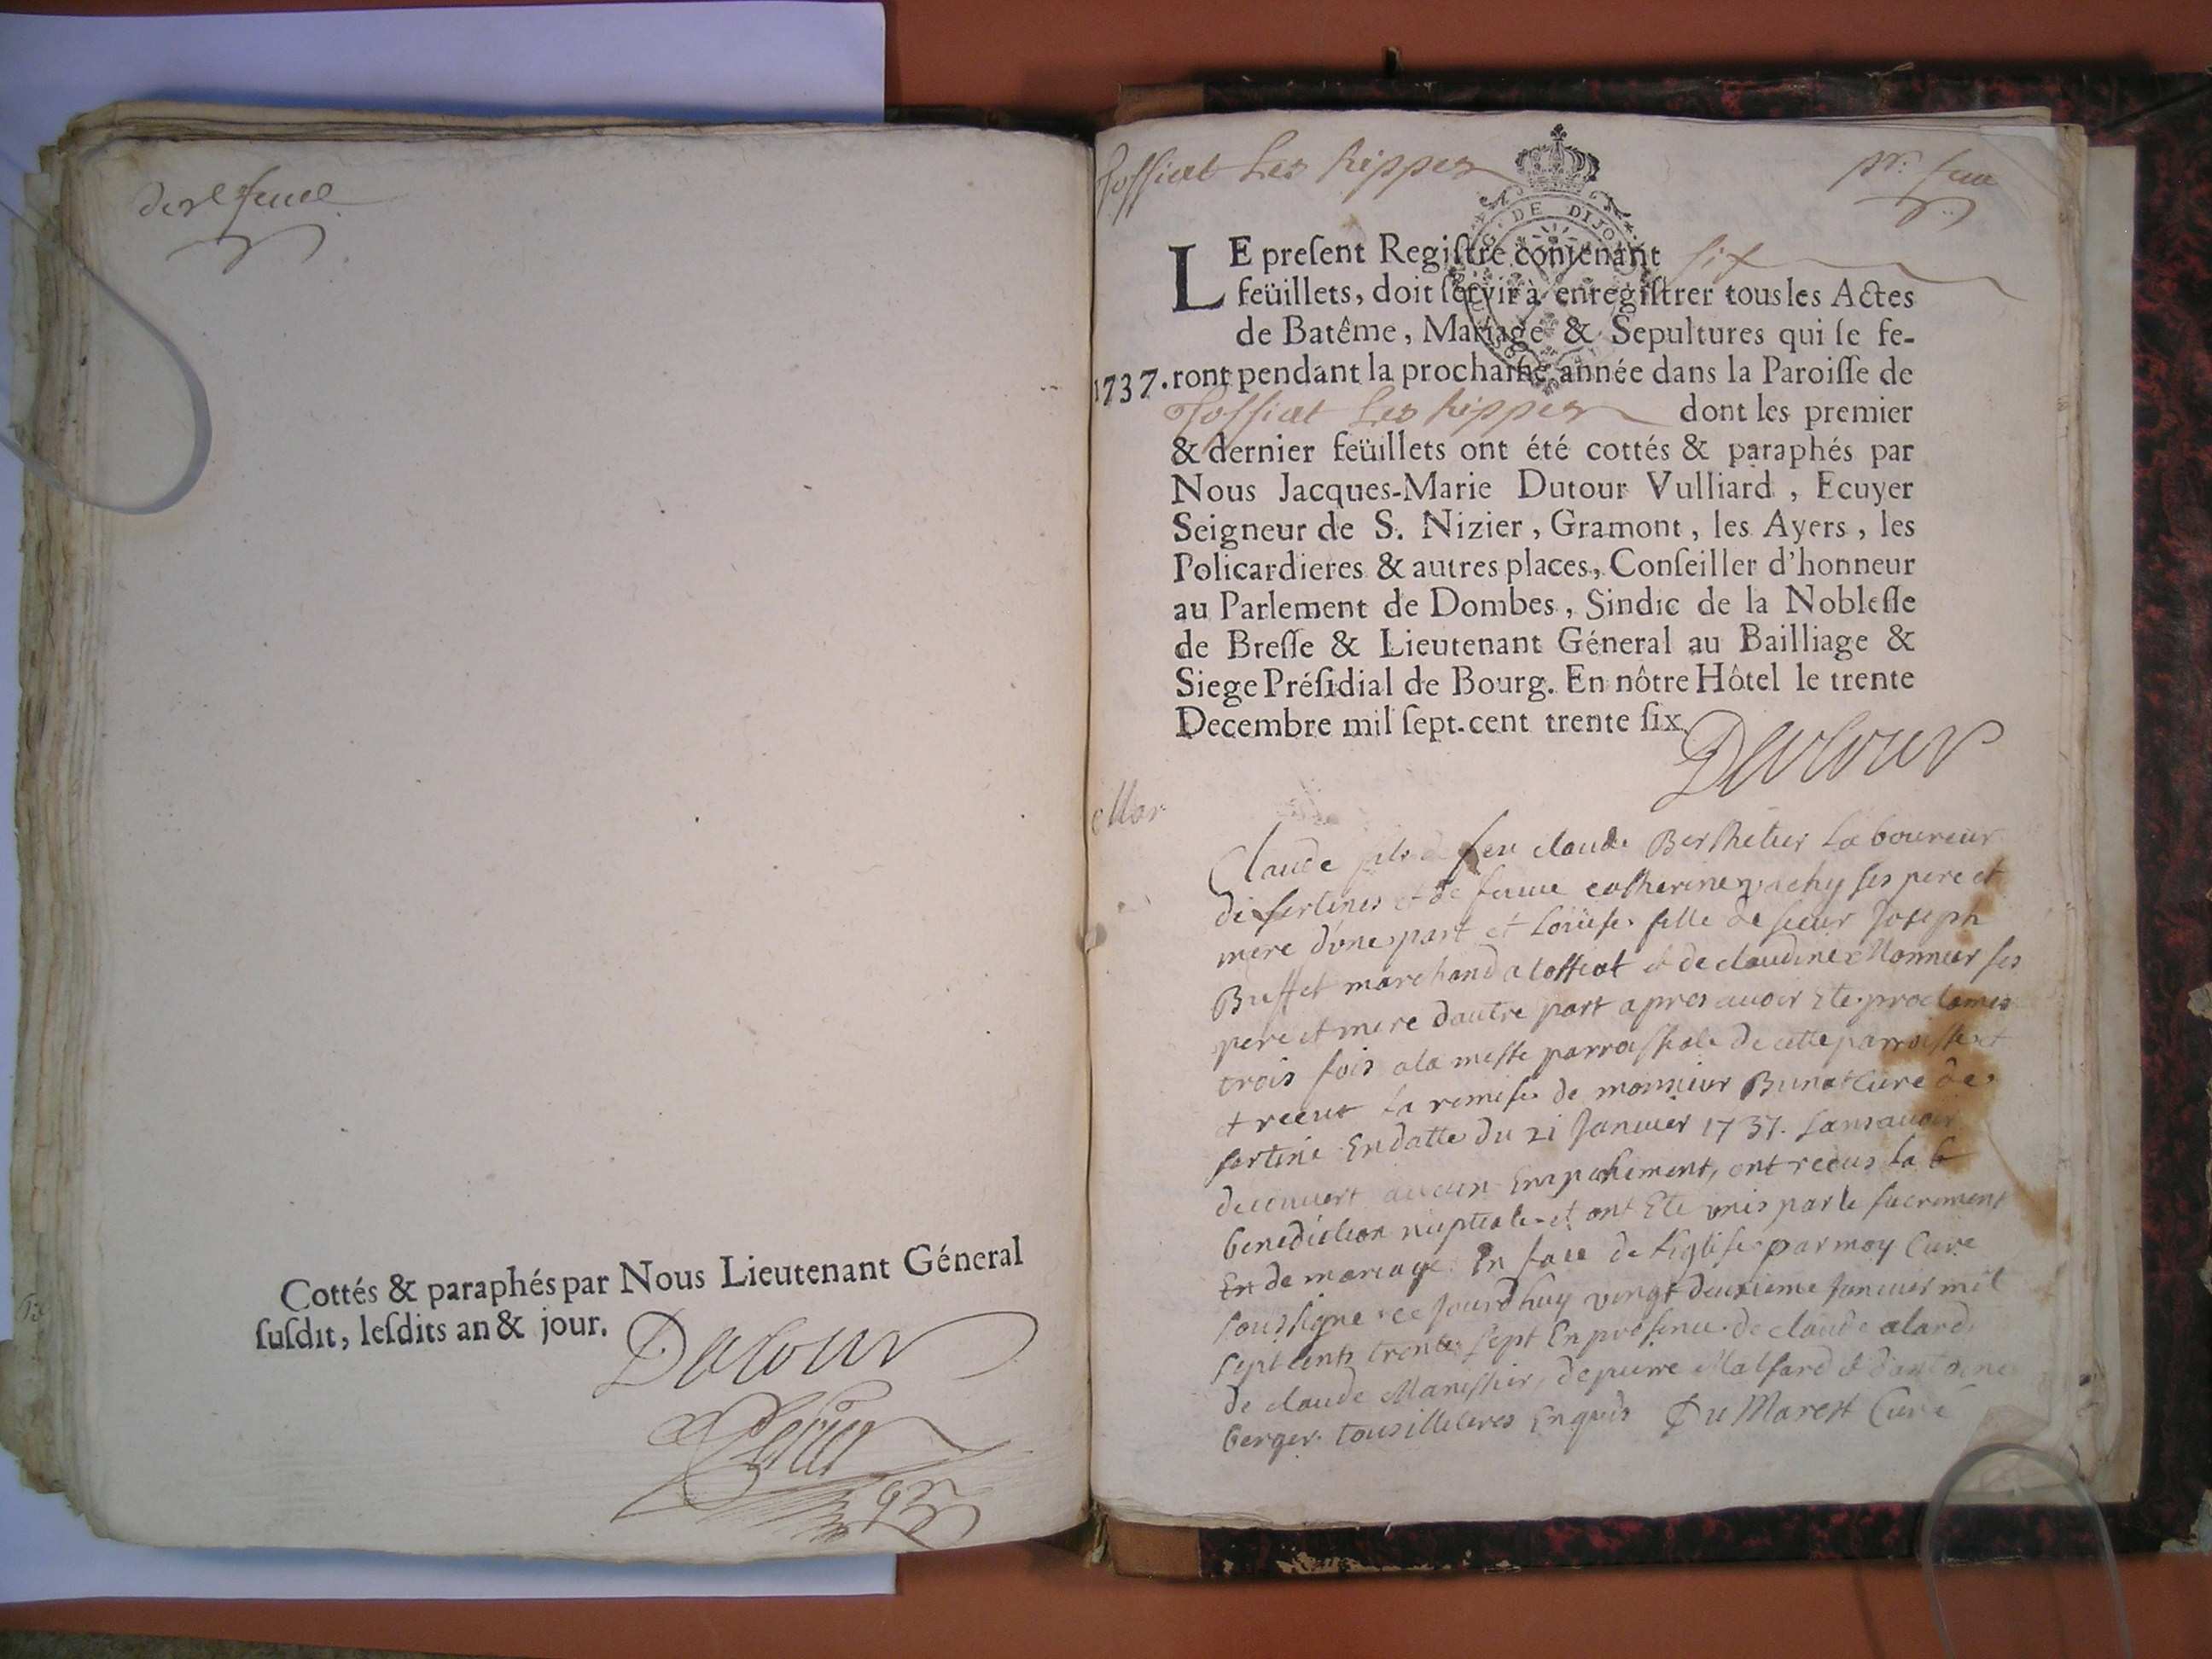 Cottés & paraphés par Nous Lieutenant Géneral
ſuſdit, leſdits an & jour.
Dutour
pr. feu
DE DIJON
LE preſent Regiſtre contenant six
feüillets, doit ſervir à enregiſtrer tous les Actes
de Batême, Mariage & Sepultures qui ſe fe-
1737. ront pendant la prochaine année dans la Paroiſſe de
dont les premier
& dernier feüillets ont été cottés & paraphés par
Nous Jacques-Marie Dutour Vulliard, Ecuyer
Seigneur de S. Nizier, Gramont, les Ayers, les
Policardieres & autres places, Conſeiller d'honneur
au Parlement de Dombes, Sindic de la Nobleſſe
de Breſſe & Lieutenant Géneral au Bailliage &
Siege Préſidial de Bourg. En nôtre Hôtel le trente
Decembre mil ſept-cent trente ſix
Dutour
Mar
Claude fils de feu claude Berthelier laboureur
de sertines et de feuue catherine ses pere et
mere d'une part et Loüise fille de sieur Joseph
Buffet marchand a tossiat et de claudine Monnier ses
pere et mere dautre part apres auoir ete proclames
trois fois a la messe parroissiale de cette parroisse et
et receut la remise de monsieur curé de
sertine En datte du 21 Januier 1737. sans auoir
decouuert aucun Empechement, ont recus la b
benediction nuptiale et ont Ete unis par le sacrement
Et de mariage En face de l'eglise par moy Curé
soussigne ce jourdhuy vingt deuxieme Januier mil
sept cents trente sept En presence de claude alard
de claude Manissier, de pierre Malfard et d'antoine
berger tous illiteres Enquis Du Marest Curé